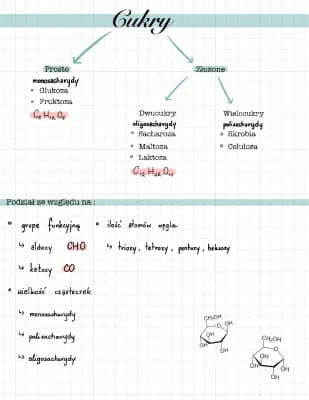 Cukry
Proste
monosacharydy
• Glukoza
• Fruktoza
C₆ H₁₂ O₆
Złożone
Dwucukry
oligosacharydy
• Sacharoza
• Maltoza
• Laktoza
C₁₂ H₂₂ O₁₁
Wielocukry
polisacharydy
• Skrobia
• Celuloza
Podział ze względu na :
• grupę funkcyjną
↳ aldozy CHO
↳ ketozy CO
• ilość atomów węgla
↳ triozy, tetrozy, pentozy, heksozy
• wielkość cząsteczek
↳ monosacharydy
↳ polisacharydy
↳ oligosacharydy
CH₂OH
O
OH
OH
OH
OH
CH₂OH
O
OH
OH
OH
OH